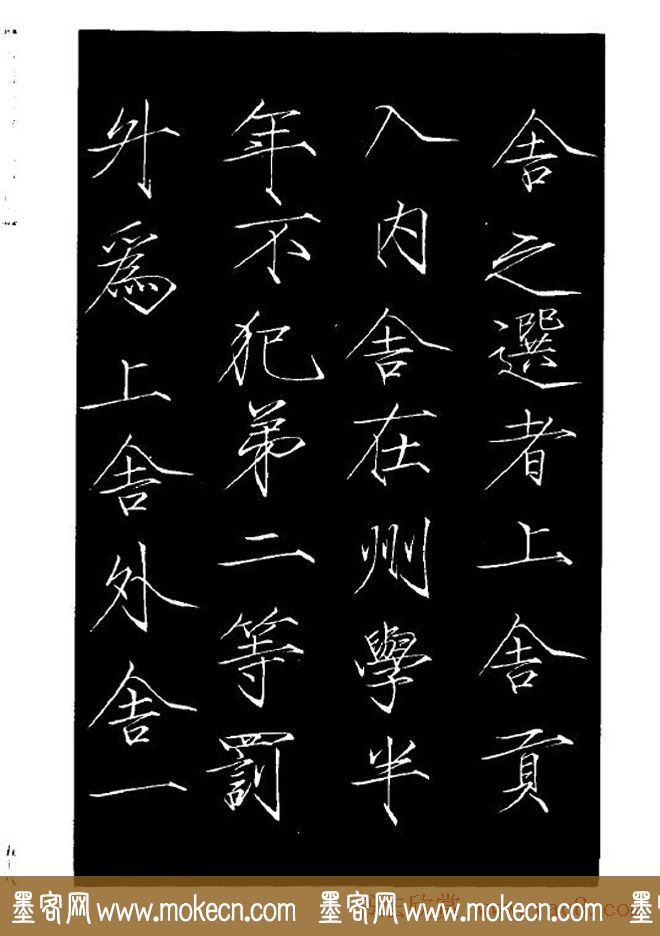 舍之選者上舍貢
入内舍在州學半
年不犯弟二等罰
升爲上舍外舍一
墨客网 www.mokecn.com 墨客网 www.mokecn.com